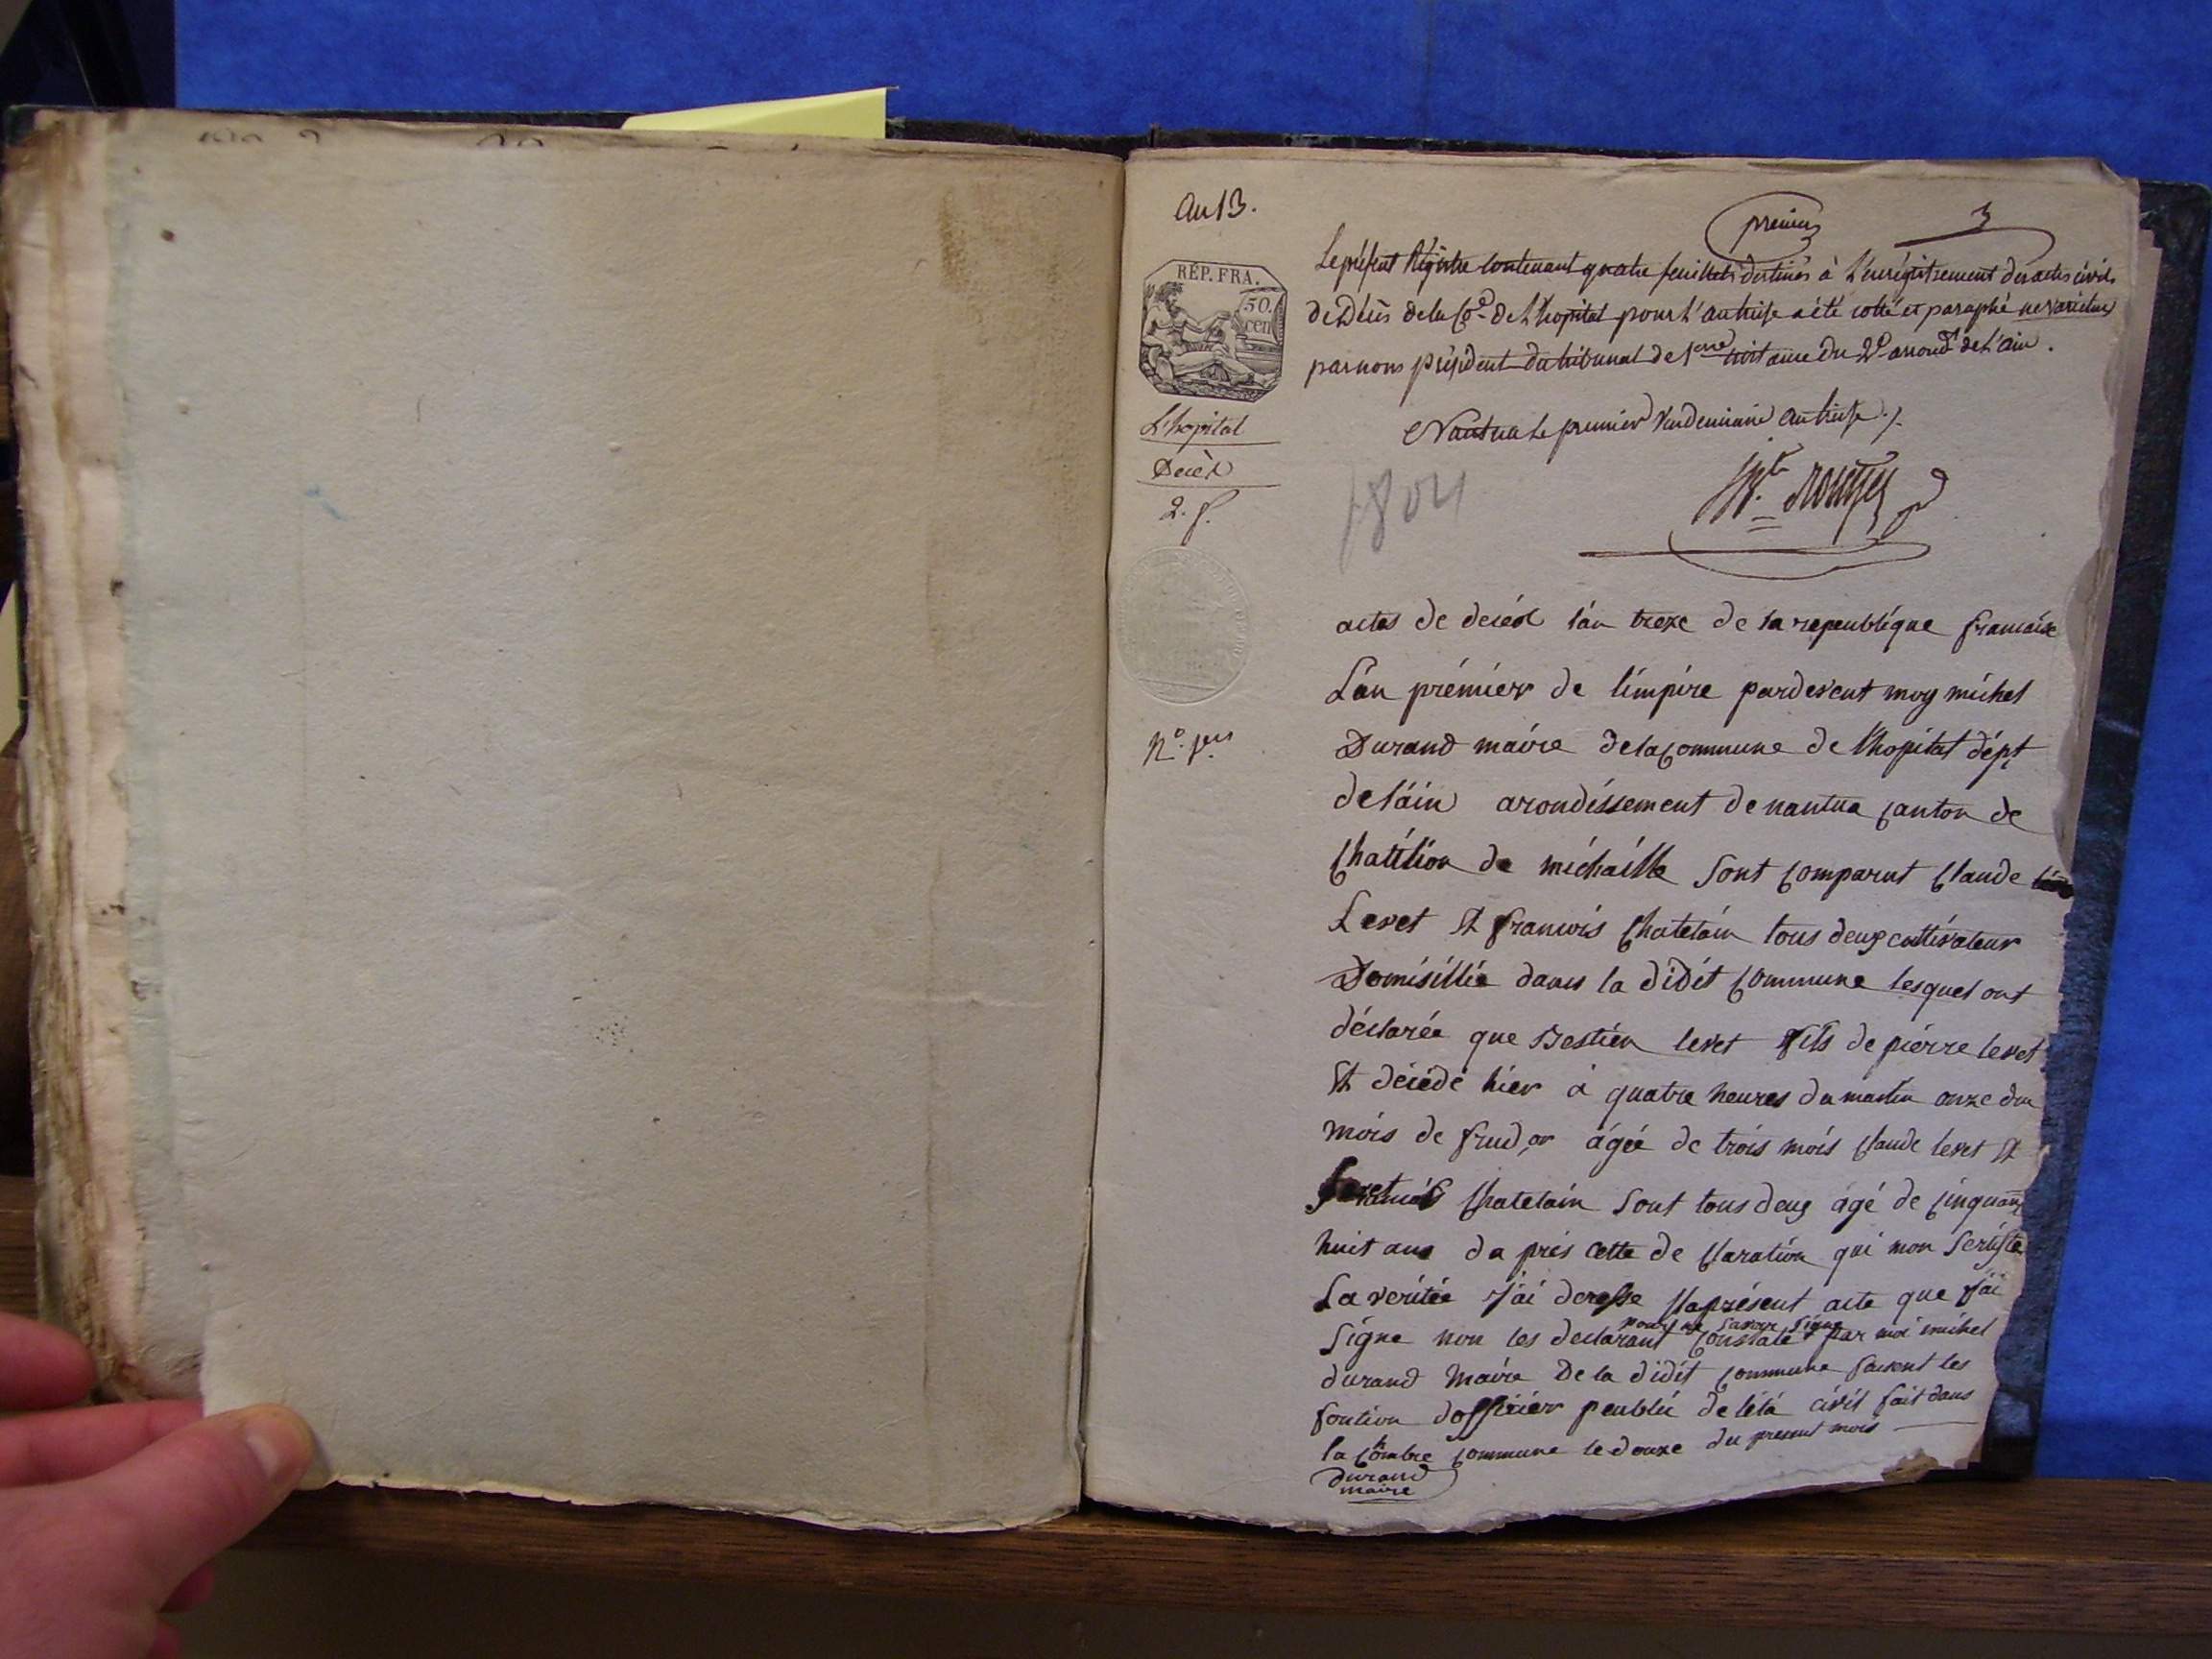 An 13.
premier
3
RÉP. FRA.
50.
cen
Le présent Régistre contenant quatre feuillets destinés à l'enrégistrement des actes civils
de Décès de la Co.e de L'hopital pour l'an treise a été cotté et paraphé ne varietur
par nous président du tribunal de 1ere instance du 2e arrond.t de l'ain.
Nantua le premier Vendemiaire an treise ./.
L'hopital
Décès
2. f.
1804
actes de decés lán treze de la repeublique francaise
Lán prémier de lémpire pardevent moy michel
N.o 1er
Durand maire de la commune de lhopital dépt
de láin arondissement de nantua canton de
Chatilion de michaille sont comparut Claude
Levet et francois Chatelain tous deux cultivateur
Domisillié dans la didit commune lesquel ont
déclarée que Bestien levet fils de pierre levet
et décédé hier á quatre heures du matin onze du
mois de frud,or ágée de trois mois Claude levet et
francois Chatelain sont tous deux ágé de cinquant
huit ans da prés cette de claration qui mon sertifie
La veritée j'ai deresse laprésent acte que j'ai
pour ne savoir signe
signe non les declarant constaté par moi michel
durand maire De la didit commune faisent les
fontion dofficier peublic de létá civil fait dans
la chombre commune le douze du present mois
Durand
maire